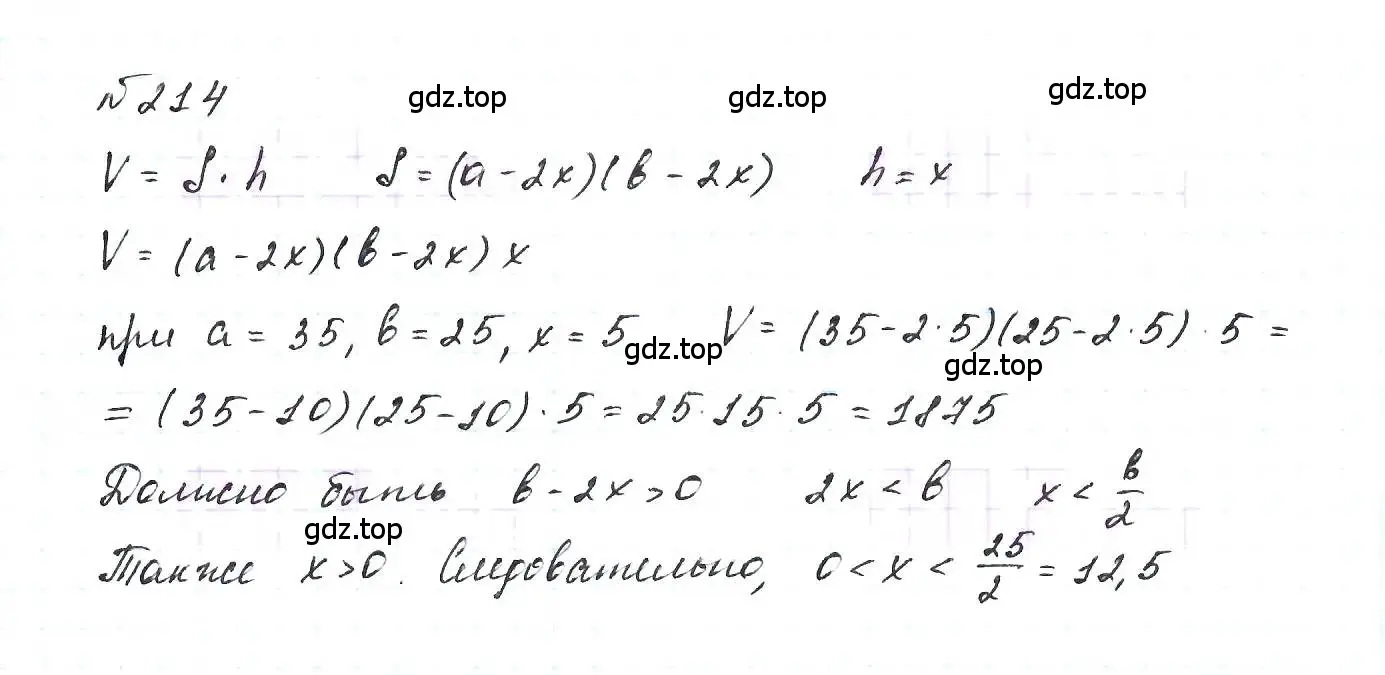 № 214
gdz.top gdz.top gdz.top
V = S · h S = (a - 2x)(b - 2x) h = x
V = (a - 2x)(b - 2x) x
при a = 35, b = 25, x = 5 V = (35 - 2 · 5)(25 - 2 · 5) · 5 =
gdz.top gdz.top
= (35 - 10)(25 - 10) · 5 = 25 · 15 · 5 = 1875
Должно быть b - 2x > 0 2x < b x < b/2
gdz.top
Также x > 0. Следовательно, 0 < x < 25/2 = 12,5